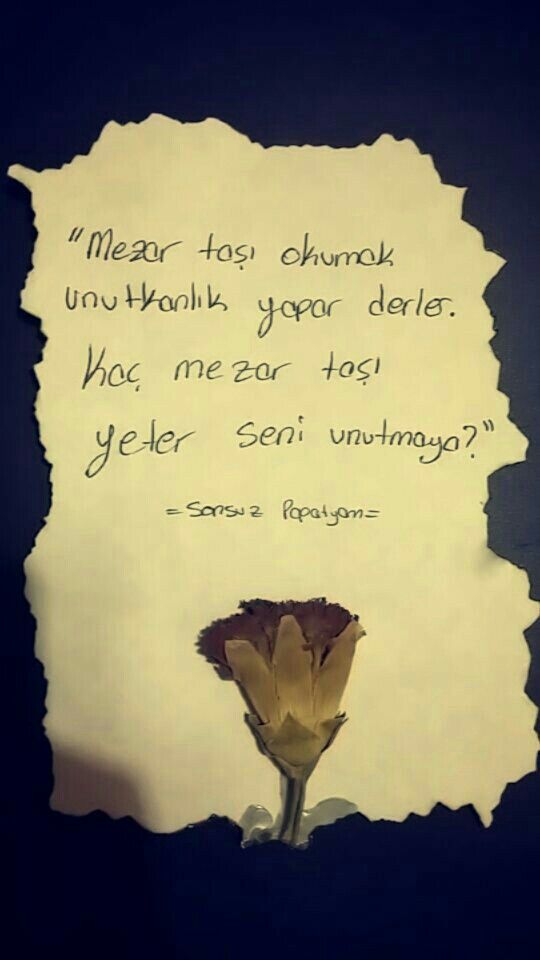 "Mezar taşı okumak
unutkanlık yapar derler.
Kaç mezar taşı
yeter seni unutmaya?"
=Sonsuz Papatyam=